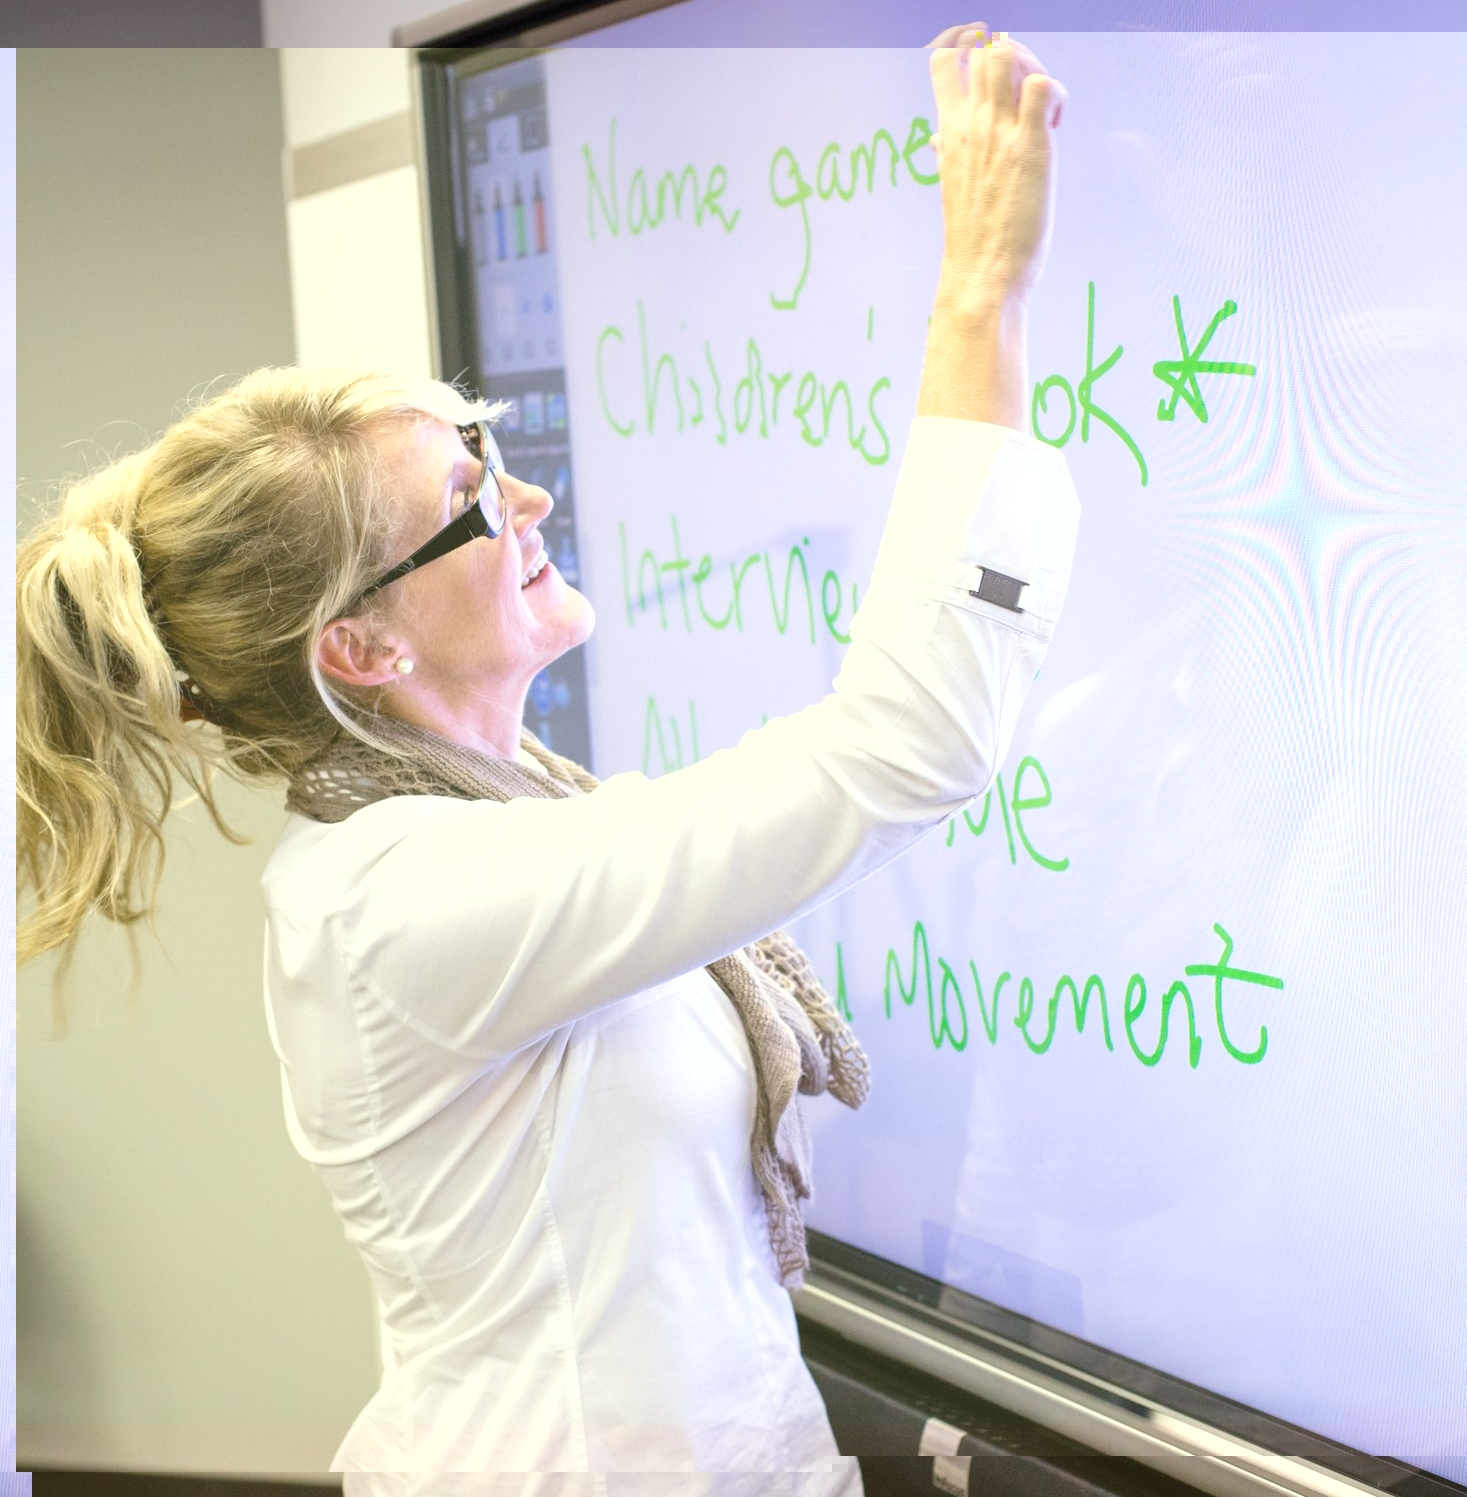 Name game
Children's ok *
Intervie
All me
d Movement